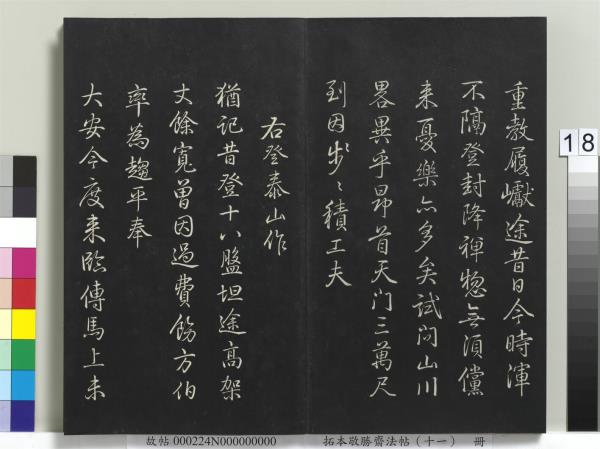 重教履巘途昔日今時渾
不隔登封降禪惚無須儻
来憂樂亦多矣試问山川
畧異乎昂首天门三萬尺
到因步〻積工夫
右登泰山作
猶記昔登十八盤坦途高架
丈餘寬曽因過費飭方伯
率為趨平奉
大安今度来臨傳馬上未
故帖 000224N000000000 拓本敬勝齋法帖（十一） 冊
18